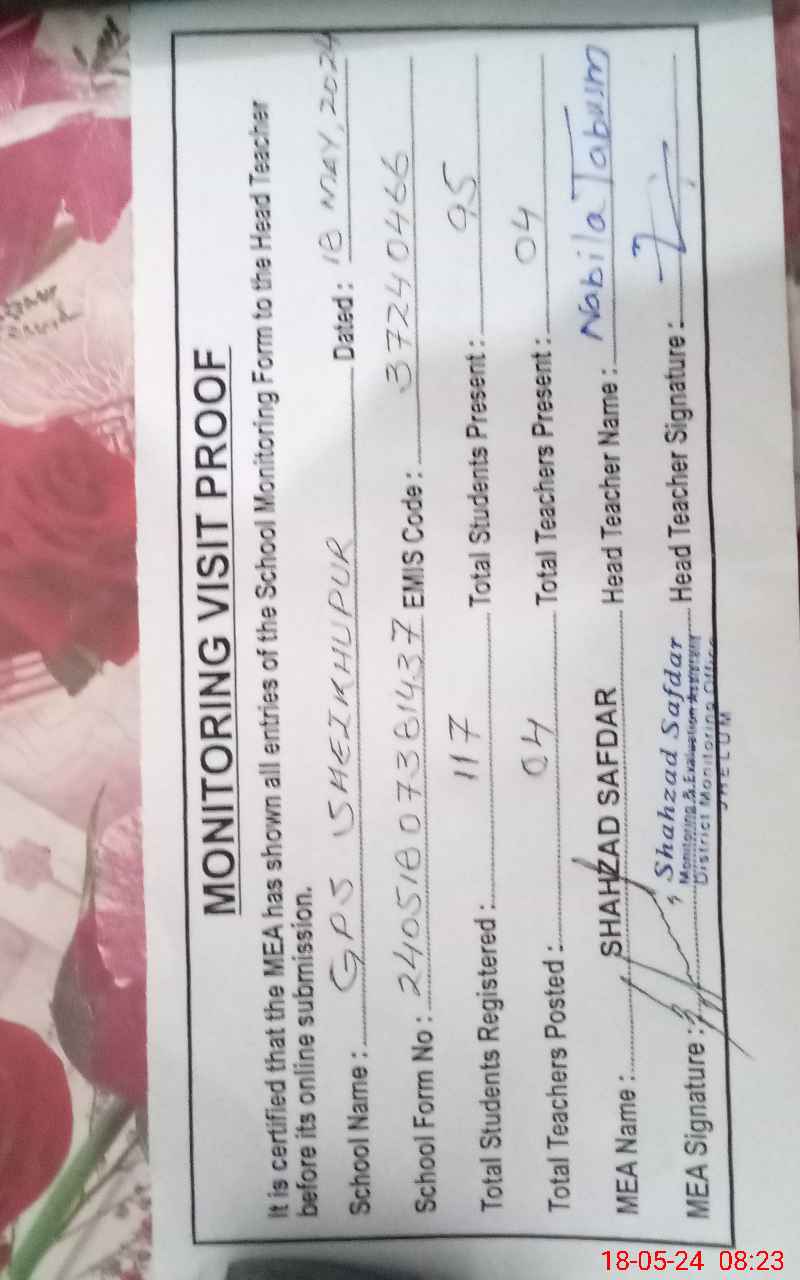 MONITORING VISIT PROOF
It is certified that the MEA has shown all entries of the School Monitoring Form to the Head Teacher
before its online submission.
School Name : GPS SHEIKHUPUR Dated : 18 MAY, 2024
School Form No : 24051807381437 EMIS Code : 37240466
Total Students Registered : 117 Total Students Present : 95
Total Teachers Posted : 04 Total Teachers Present : 04
MEA Name : SHAHZAD SAFDAR Head Teacher Name : Nabila Tabusm
MEA Signature : Shahzad Safdar Head Teacher Signature :
Monitoring & Evaluation Assistant
District Monitoring Office
JHELUM
18-05-24 08:23